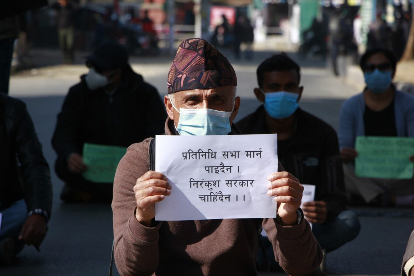 प्रतिनिधि सभा मार्न
पाइदैन ।
निरंकुश सरकार
चाहिँदैन ।।